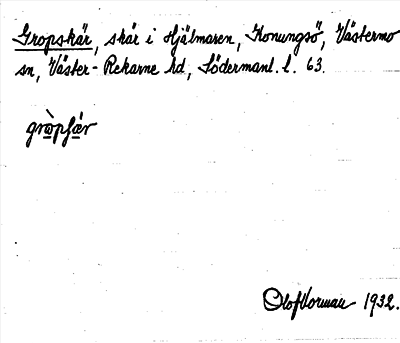 Gropskär, skär i Hjälmaren, Konungsö, Västermo
sn, Väster-Rekarne hd, Södermanl. l. 63.
gròpʃär
Olof Norman 1932.